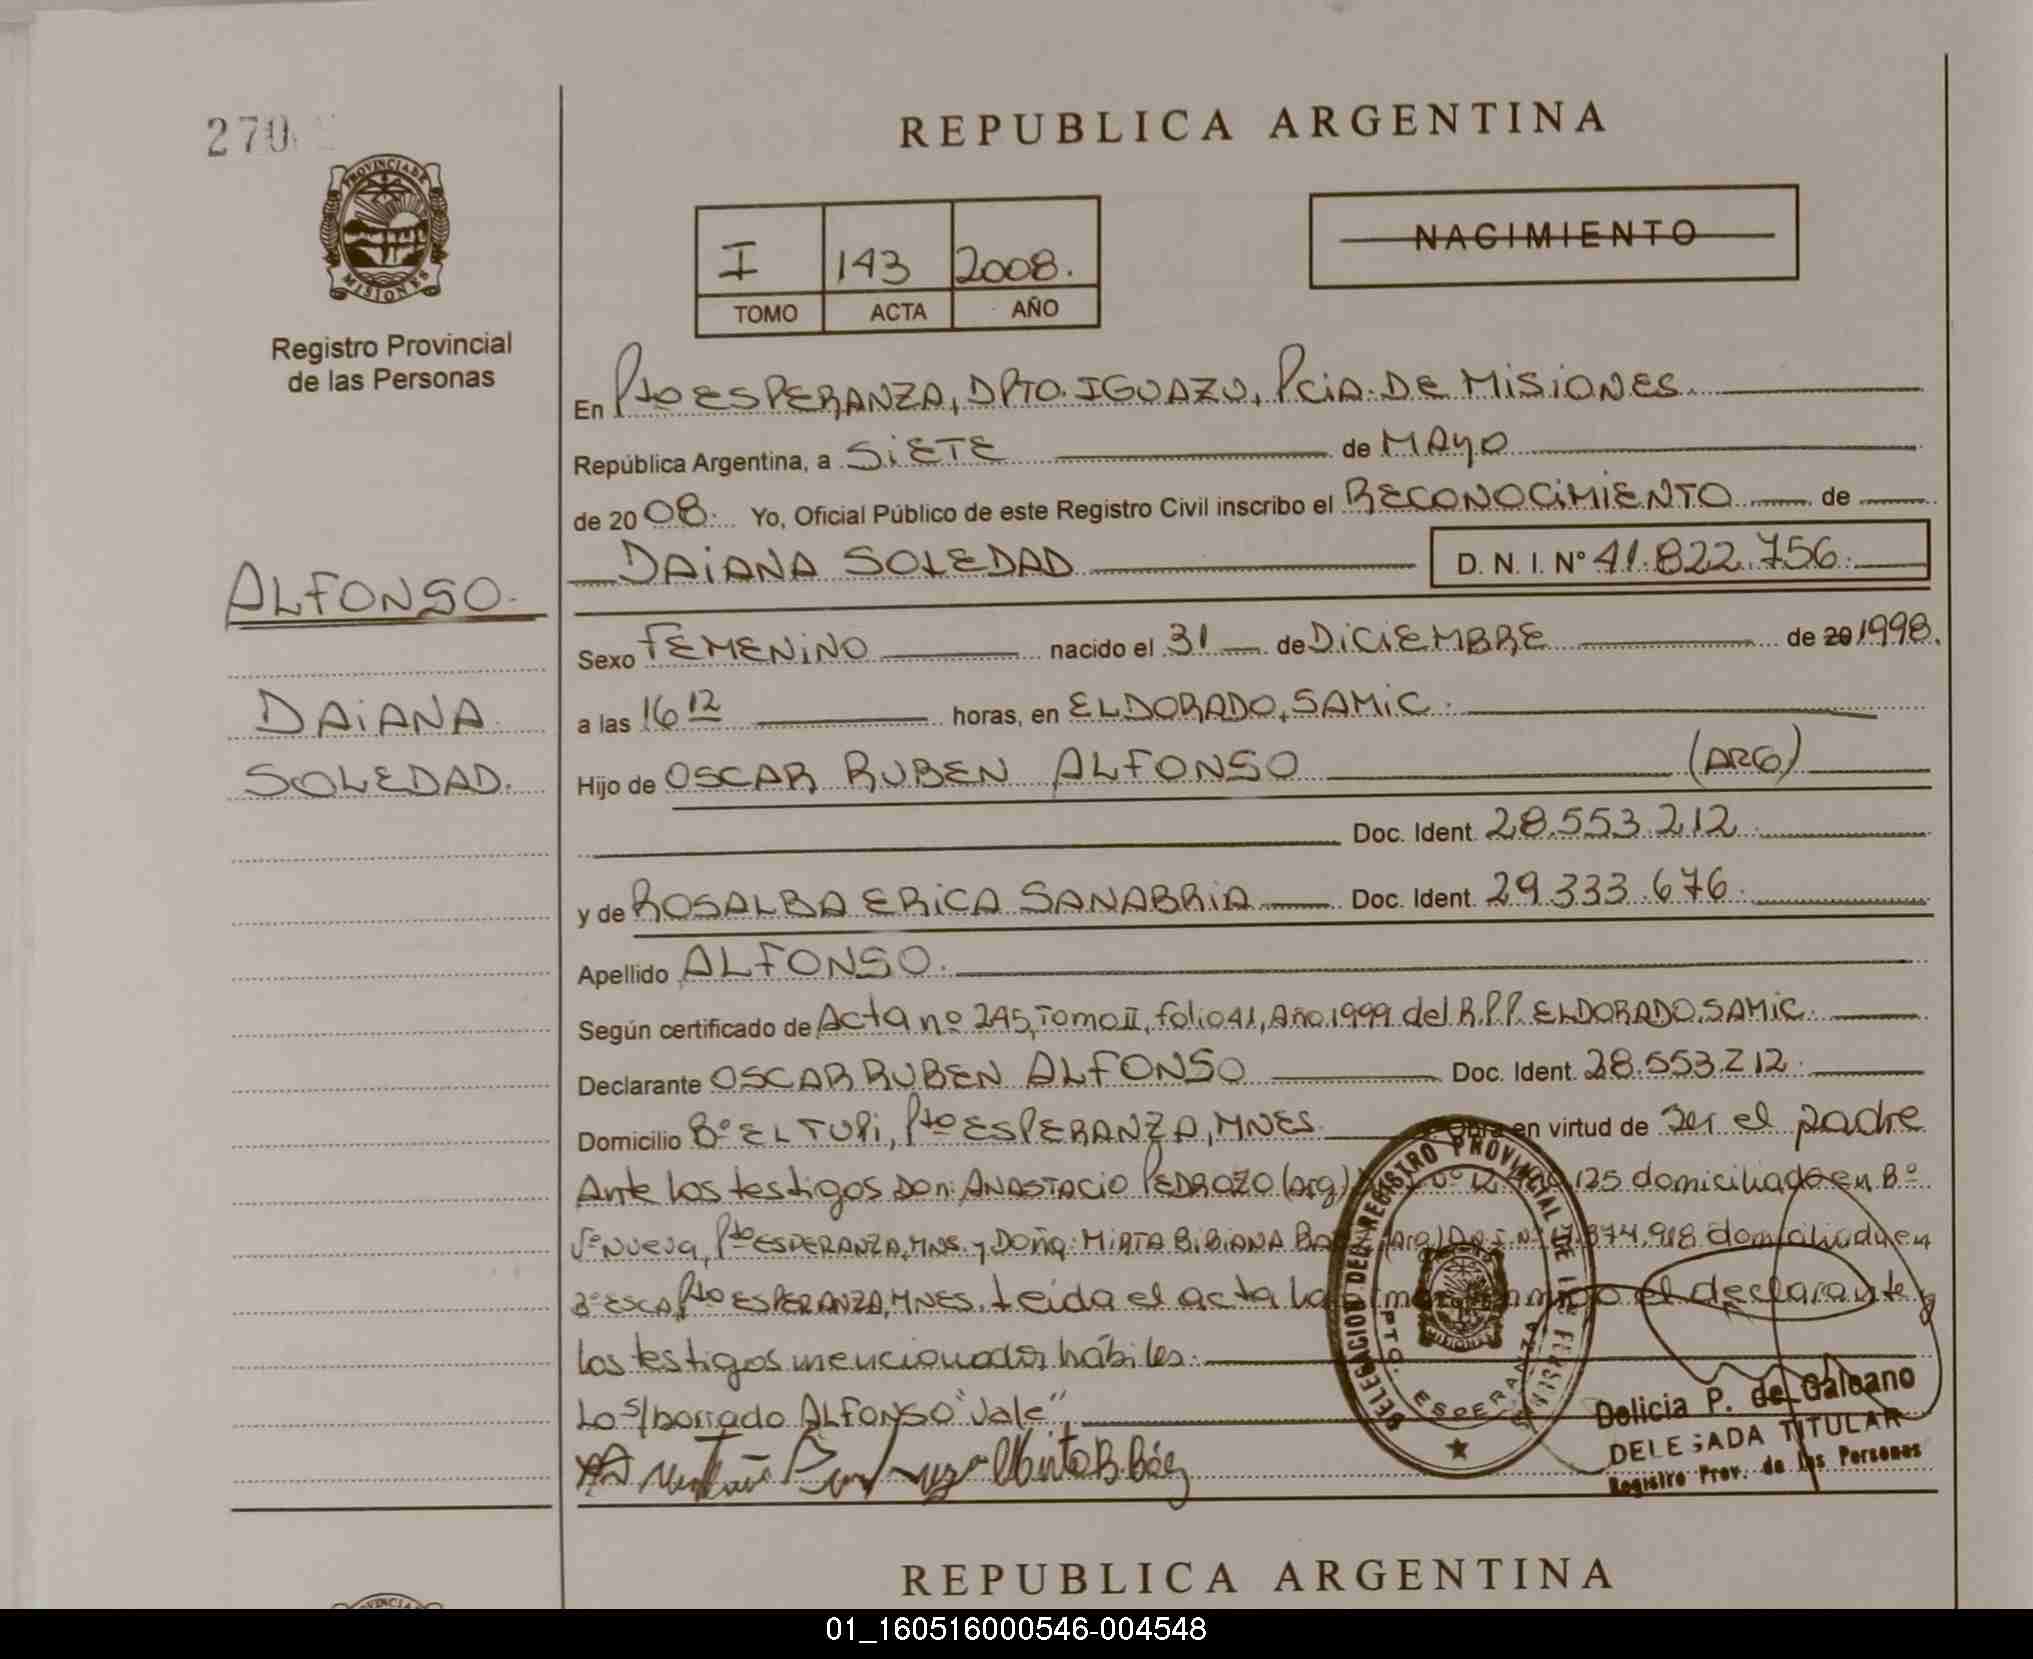 270
PROVINCIA DE
MISIONES
Registro Provincial
de las Personas
ALFONSO.
DAIANA
SOLEDAD.
REPUBLICA ARGENTINA
I 143 2008.
TOMO ACTA AÑO
NACIMIENTO
En Pto ESPERANZA, DPTO. IGUAZU, PCIA. DE MISIONES.
República Argentina, a SIETE de MAYO
de 2008. Yo, Oficial Público de este Registro Civil inscribo el RECONOCIMIENTO de
DAIANA SOLEDAD D. N. I. Nº 41.822.756.
Sexo FEMENINO nacido el 31 de DICIEMBRE de 20 1998.
a las 16 12 horas, en ELDORADO, SAMIC.
Hijo de OSCAR RUBEN ALFONSO (ARG)
Doc. Ident. 28.553.212
y de ROSALBA ERICA SANABRIA Doc. Ident. 29.333.676.
Apellido ALFONSO.
Según certificado de Acta nº 245, Tomo II, folio 41, Año 1999 del R.P.P. ELDORADO, SAMIC.
Declarante OSCAR RUBEN ALFONSO Doc. Ident. 28.553.212.
Domicilio Bº EL TUPI, Pto ESPERANZA, MNES. Obra en virtud de ser el padre
Ante los testigos Don: ANASTACIO PEDROZO (arg) 125 domiciliado en Bº
Vº Nueva, Pto ESPERANZA, MNS. y Doña: MIRTA BIBIANA 874.918 domiciliada en
Bº ESCA, Pto ESPERANZA, MNES. Leida el acta la el declarante y
los testigos mencionados hábiles.
Lo s/borrado ALFONSO "Vale",
Mirta B. Báez
DELEGACION DEL REGISTRO PROVINCIAL DE LAS PERSONAS
PTO. ESPERANZA
MISIONES
Delicia P. de Galeano
DELEGADA TITULAR
Registro Prov. de las Personas
REPUBLICA ARGENTINA
01_160516000546-004548